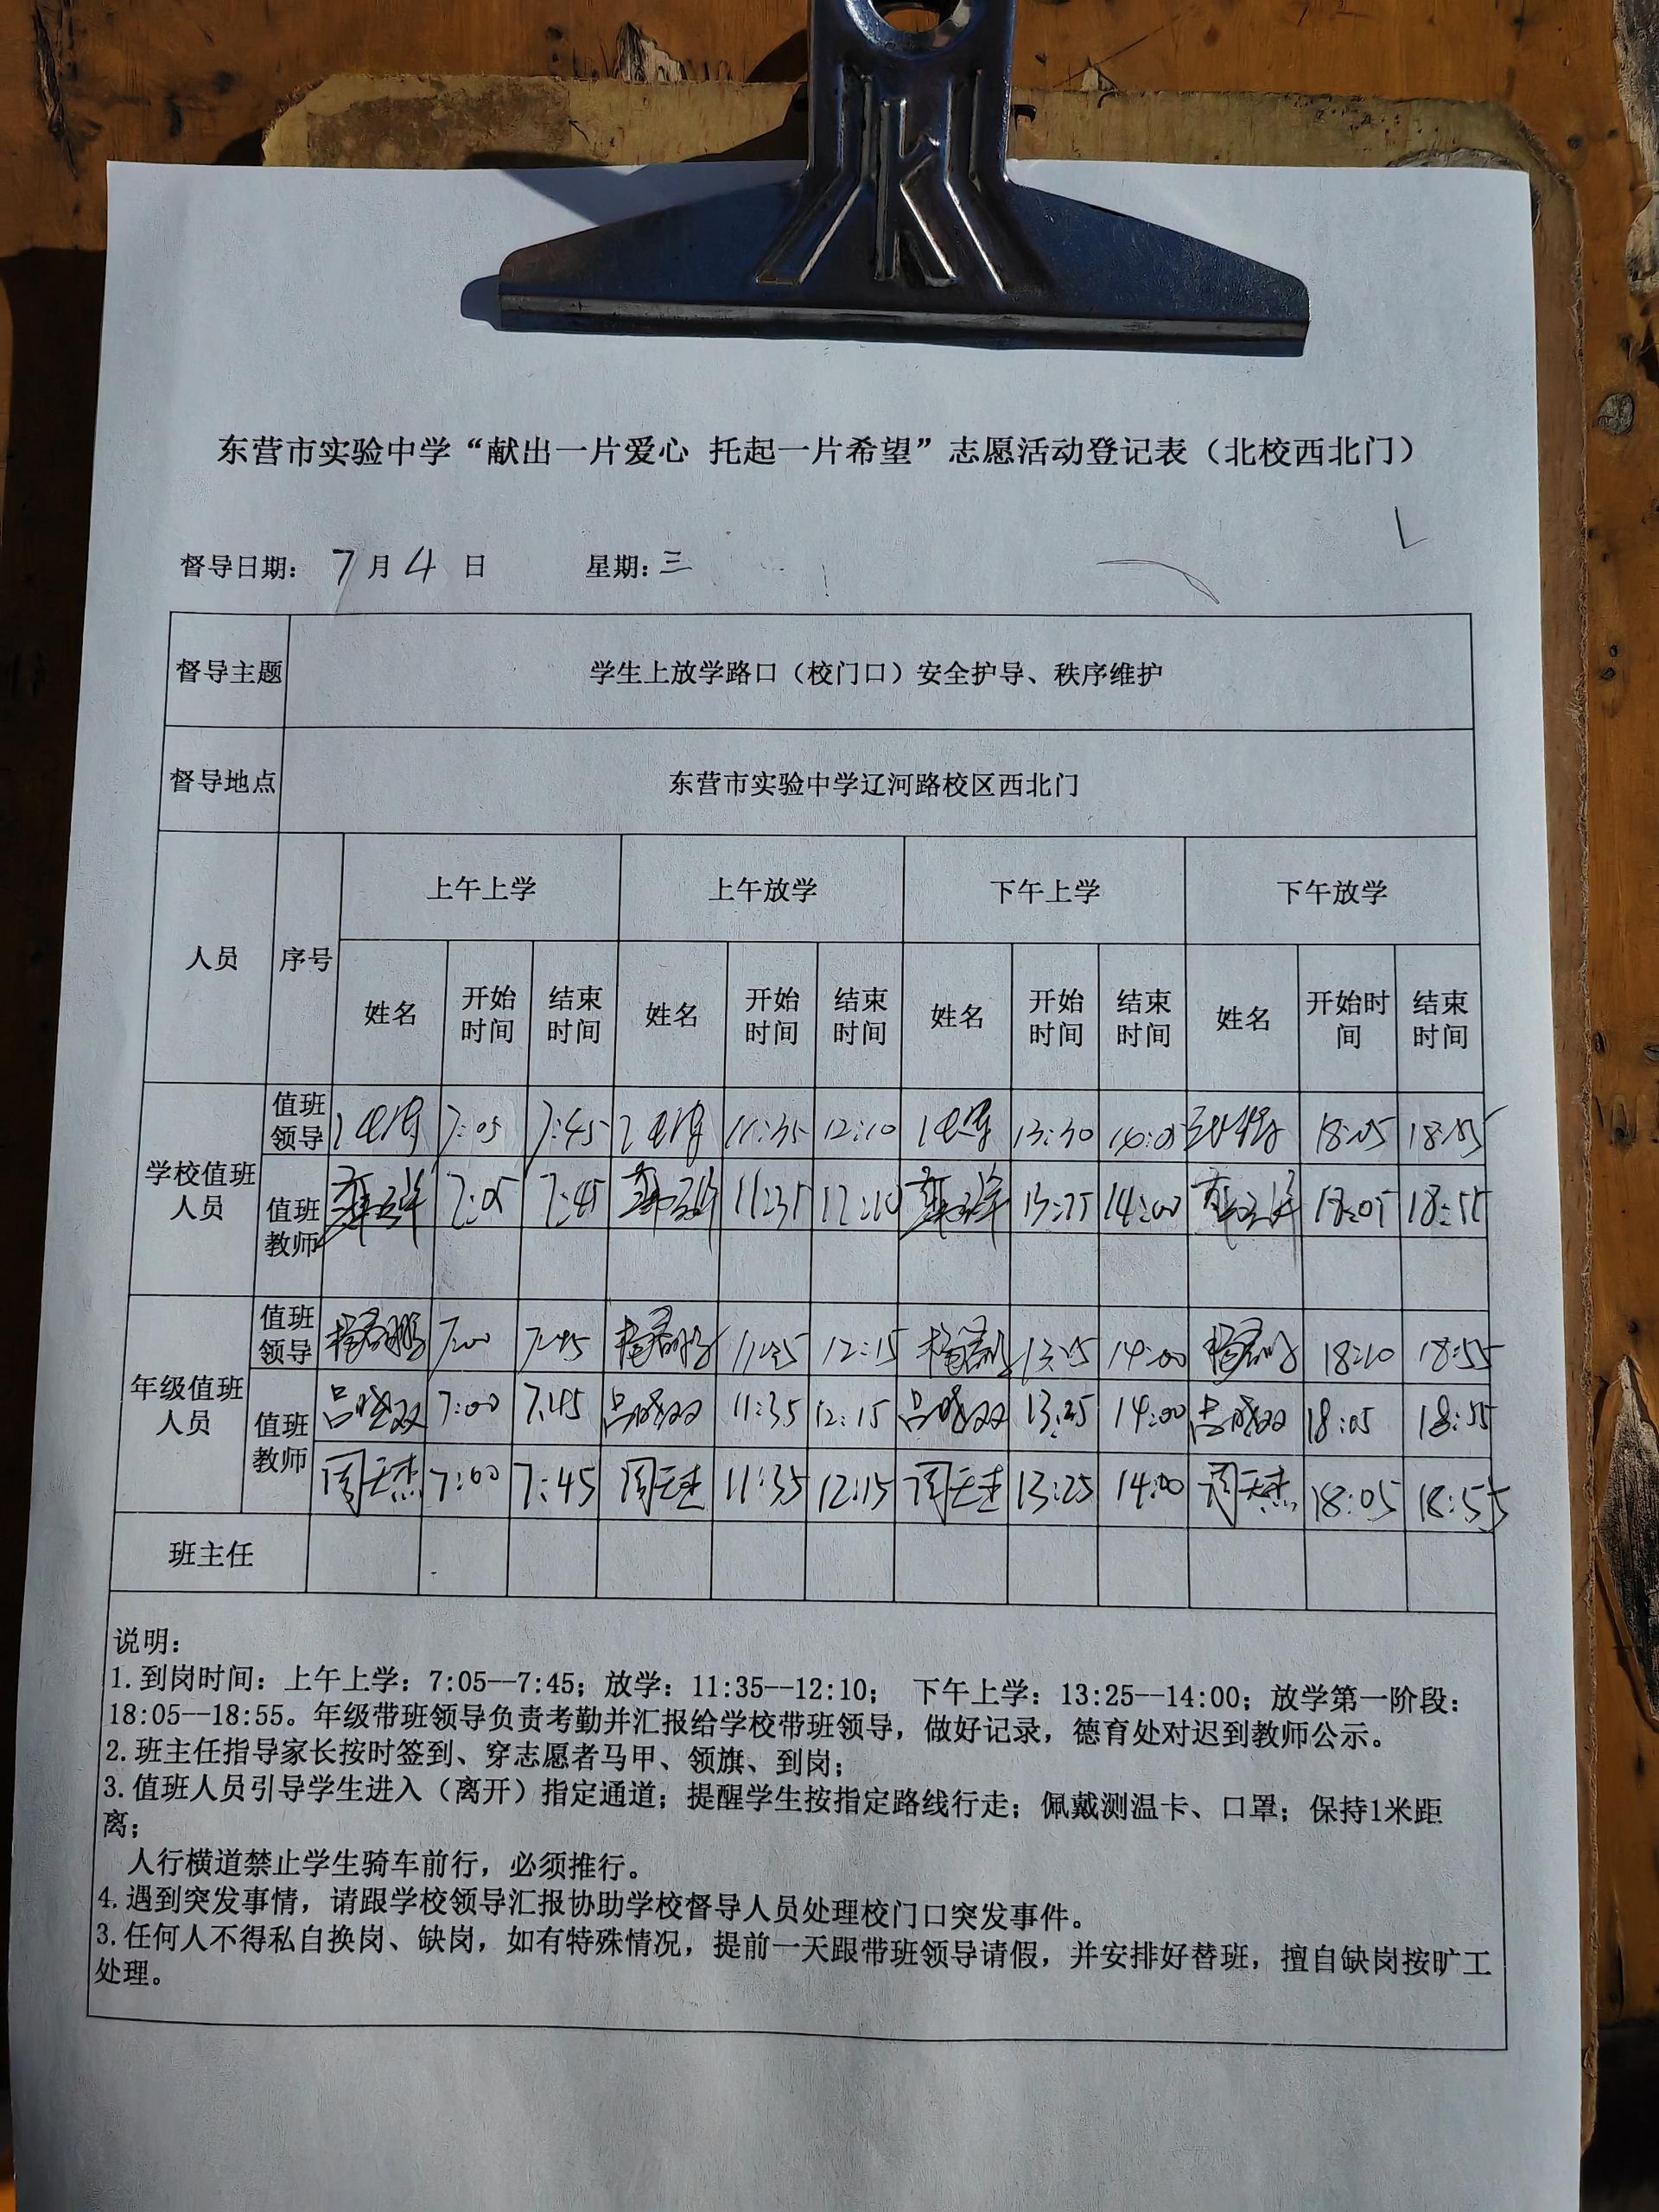 东营市实验中学“献出一片爱心 托起一片希望”志愿活动登记表（北校西北门）
督导日期： 7 月 4 日 星期：三
督导主题 学生上放学路口（校门口）安全护导、秩序维护
督导地点 东营市实验中学辽河路校区西北门
人员 序号 上午上学 上午放学 下午上学 下午放学
姓名 开始时间 结束时间 姓名 开始时间 结束时间 姓名 开始时间 结束时间 姓名 开始时间 结束时间
学校值班人员 值班领导 7:05 7:45 11:35 12:10 13:30 18:05
值班教师 7:05 7:45 11:35 12:10 14:00 18:05 18:55
年级值班人员 值班领导 7:00 7:45 12:15 14:00 18:10 18:55
值班教师 吕晓双 7:00 7:45 吕晓双 11:35 12:15 吕晓双 13:25 14:00 吕晓双 18:05 18:55
周天杰 7:00 7:45 周天杰 11:35 12:15 周天杰 13:25 14:00 周天杰 18:05 18:55
班主任
说明：
1.到岗时间：上午上学：7:05--7:45；放学：11:35--12:10； 下午上学：13:25--14:00；放学第一阶段：
18:05--18:55。年级带班领导负责考勤并汇报给学校带班领导，做好记录，德育处对迟到教师公示。
2.班主任指导家长按时签到、穿志愿者马甲、领旗、到岗；
3.值班人员引导学生进入（离开）指定通道；提醒学生按指定路线行走；佩戴测温卡、口罩；保持1米距
离；
人行横道禁止学生骑车前行，必须推行。
4.遇到突发事情，请跟学校领导汇报协助学校督导人员处理校门口突发事件。
3.任何人不得私自换岗、缺岗，如有特殊情况，提前一天跟带班领导请假，并安排好替班，擅自缺岗按旷工
处理。